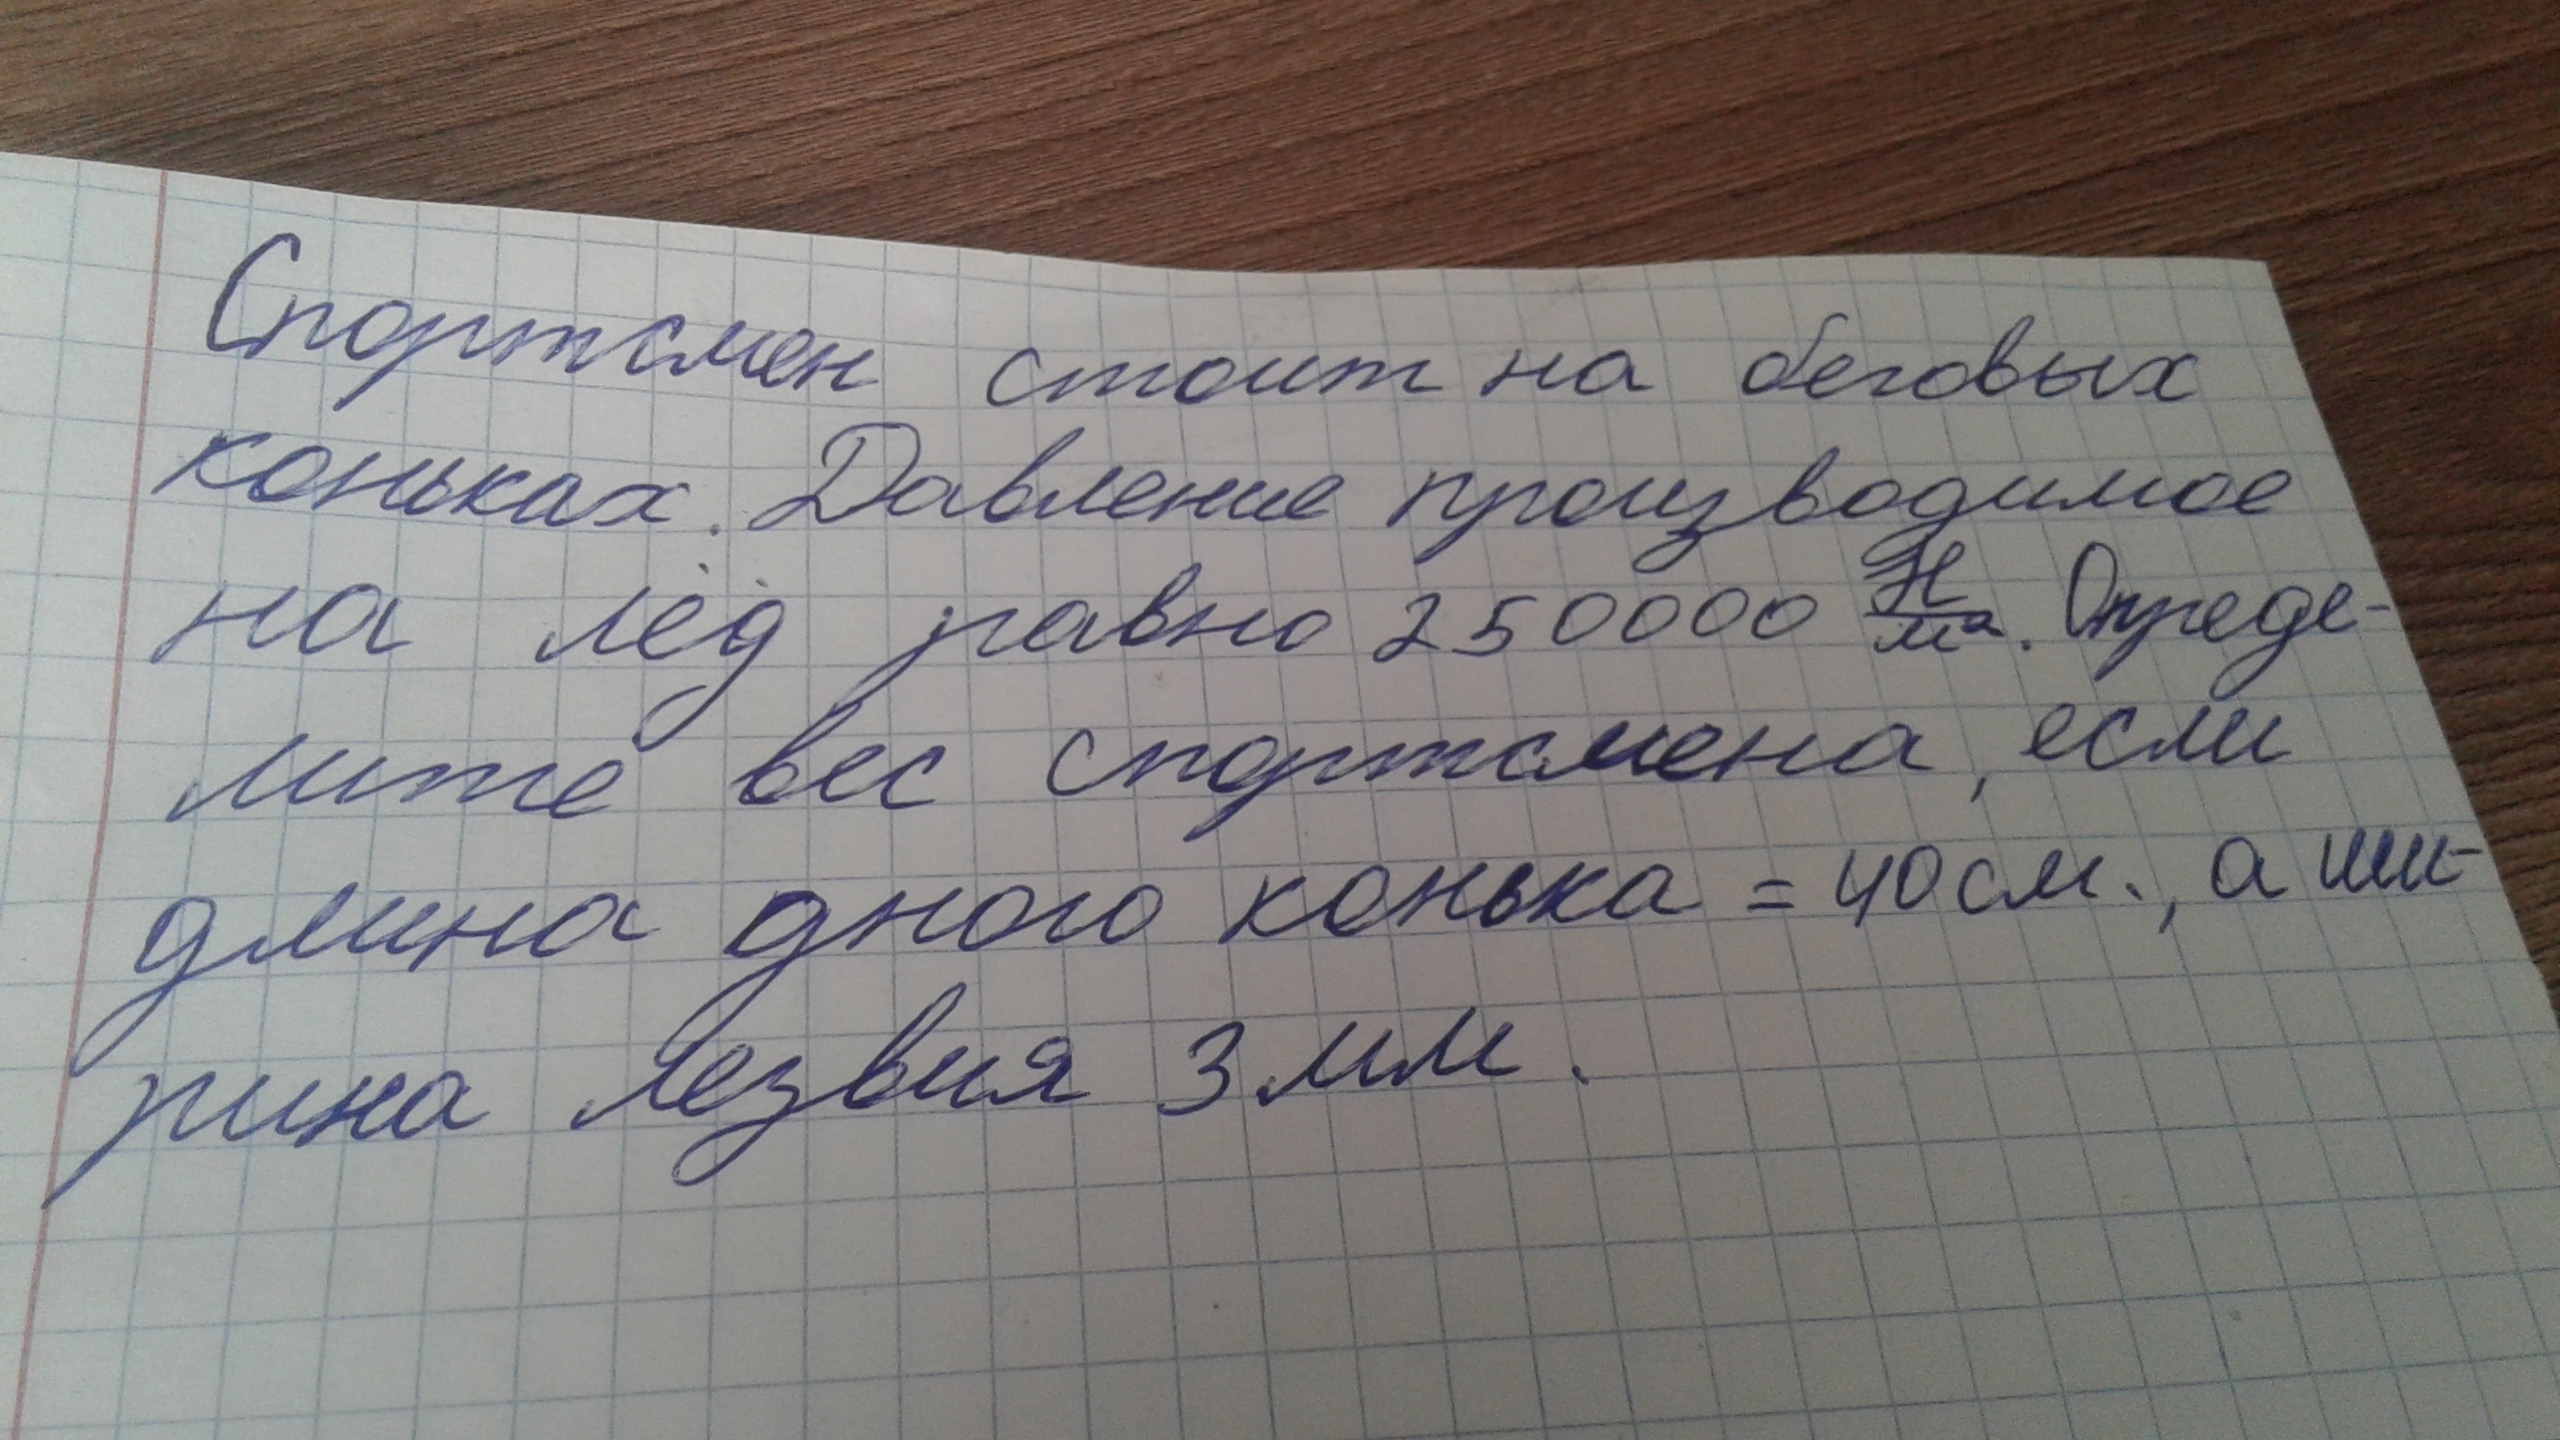 Спортсмен стоит на беговых
коньках. Давление производимое
на лёд равно 250000 Н/м². Опреде-
лите вес спортсмена, если
длина дного конька = 40 см., а ши-
рина лезвия 3 мм.